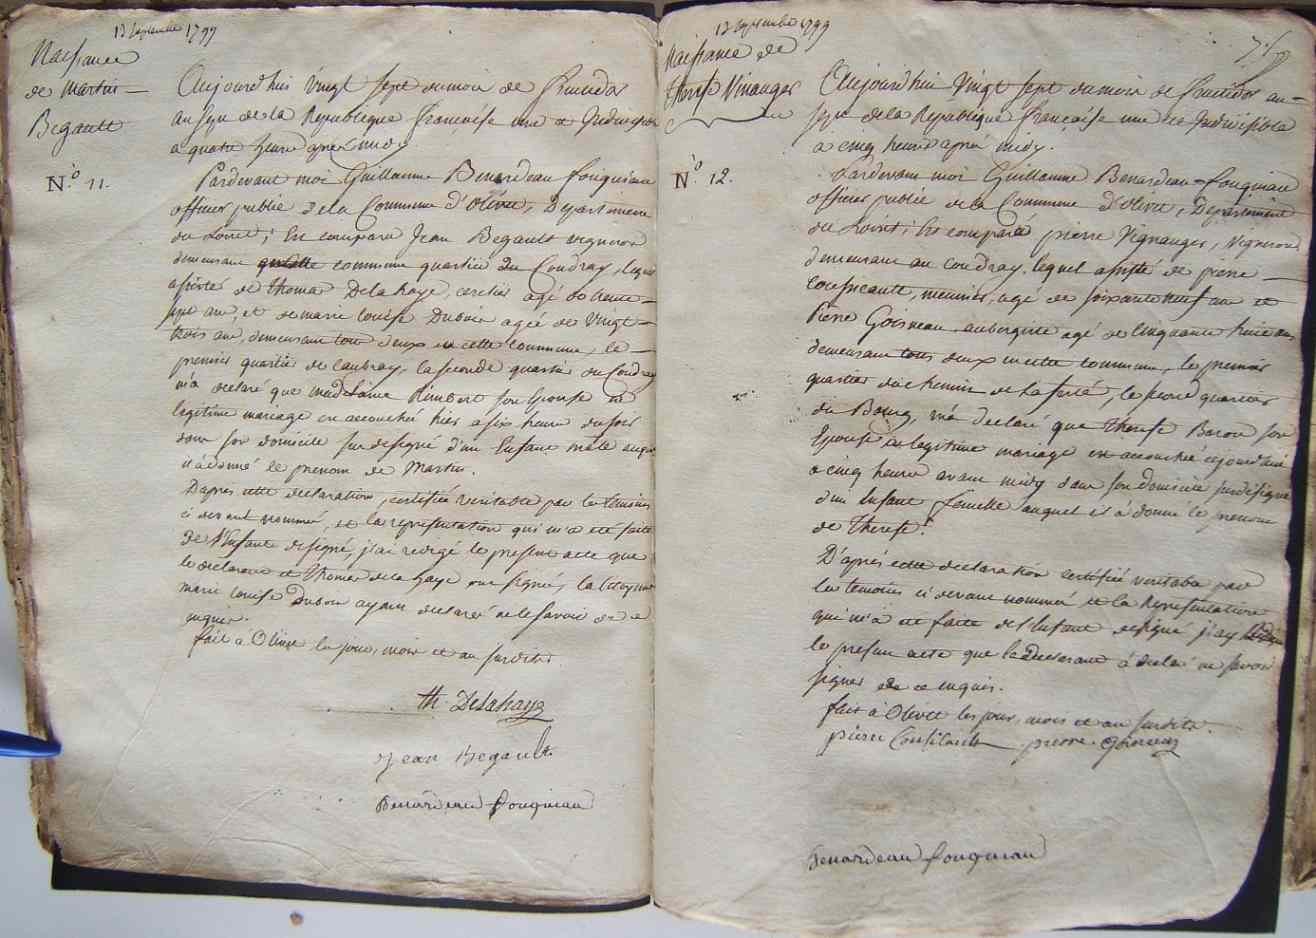 13 Septembre 1799
Naissance
de Martin
Begault
N.o 11.
Aujourd'hui vingt sept du mois de fructidor
an sept de la République françoise une et Indivisible
a quatre heure après midy
Pardevant moi Guillaume Benardeau fouqueau
officier public de la Commune d'Olivet, Departement
du Loiret, Est comparu Jean Begault vigneron
demeurant commune quartier du Coudray, lequel
assisté de Thomas Delahaye, cerclier agé de trente
sept ans, et de marie Louise Dubois agée de vingt
trois ans, demeurant tous deux en cette commune, le
premier quartier de Caubray, la seconde quartier du Coudray
m'a declaré que madelaine Rimbert son Epouse en
legitime mariage est accouchée hier a six heure du soir
dans son domicile sus designé d'un Enfant mâle auquel
il a donné le prenom de Martin.
D'après cette declaration, certifiée veritable par les temoins
ci devant nommés, et la representation qui m'a été faite
de l'Enfant designé, j'ai redigé le present acte que
le declarant et Thomas de la haye ont signé, la citoyenne
marie Louise Dubois ayant declaré ne le savoir de ce
enquis.
fait à Olivet les jour, mois et an susdits.
th. Delahaye
Jean Begault
Benardeau fouqueau
13 Septembre 1799
Naissance de
Therese Vinanger
N.o 12.
Aujourd'hui Vingt sept du mois de fructidor an
sept de la République françoise une et Indivisible
a cinq heures après midy.
Pardevant moi Guillaume Benardeau fouqueau
officier public de la Commune d'Olivet, Departement
du Loiret, Est comparu pierre Vignanger, Vigneron
demeurant au coudray, lequel assisté de pierre
meunier, agé de soixante neuf ans et
Pierre Goisneau aubergiste agé de Cinquante huit ans
demeurant tous deux en cette commune, le premier
quartier du chemin de la ferté, le second quartier
du Bourg, m'a declaré que therese Baron son
Epouse en legitime mariage est accouchée cejourd'hui
a cinq heures avant midy dans son domicile susdesigné
d'un Enfant femelle auquel il a donné le prenom
de Therese.
D'après cette declaration certifiée veritable par
les temoins ci devant nommés et la Representation
qui m'a été faite de l'Enfant designé j'ay
le present acte que le declarant a declaré ne savoir
signer de ce enquis.
fait à Olivet les jour, mois et an susdits.
pierre pierre Goisneau
Benardeau fouqueau